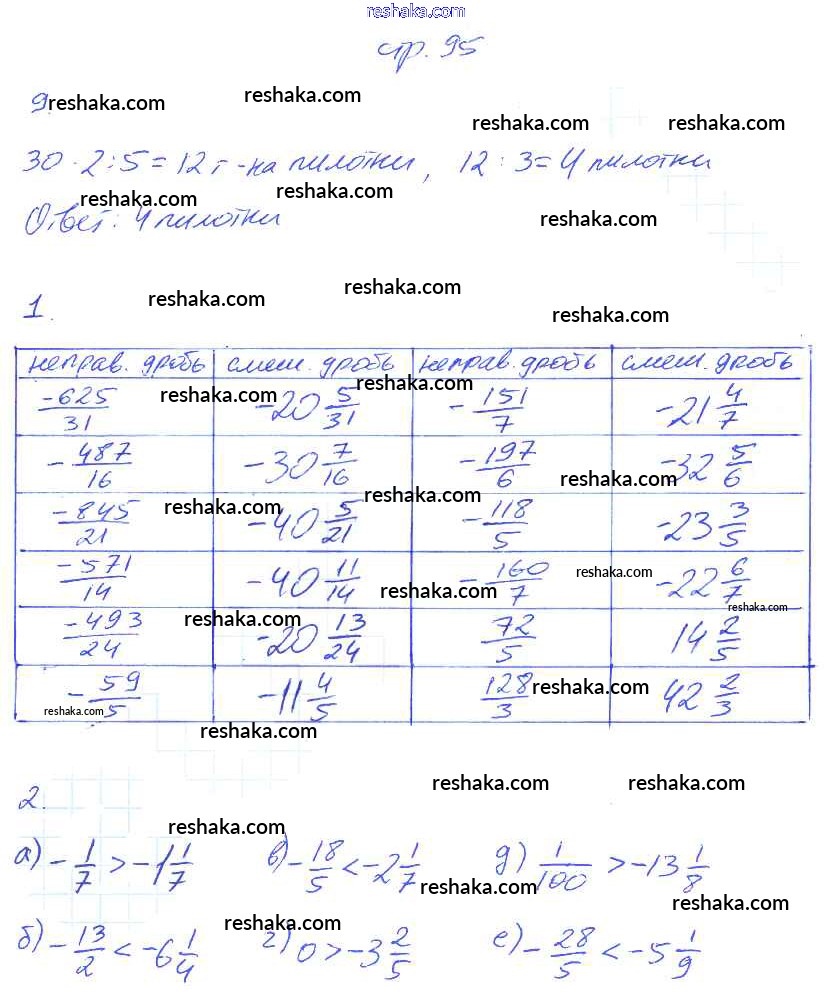 reshaka.com
стр. 95
9. reshaka.com reshaka.com reshaka.com
30 · 2 : 5 = 12 г - на пилотки, 12 : 3 = 4 пилотки
reshaka.com reshaka.com reshaka.com
Ответ: 4 пилотки reshaka.com
1. reshaka.com reshaka.com reshaka.com
неправ. дробь смеш. дробь неправ. дробь смеш. дробь
-625/31 reshaka.com -20 5/31 reshaka.com -151/7 -21 4/7
-487/16 -30 7/16 -197/6 reshaka.com -32 5/6
-845/21 reshaka.com -40 5/21 reshaka.com -118/5 -23 3/5
-571/14 -40 11/14 reshaka.com -160/7 reshaka.com -22 6/7 reshaka.com
-493/24 reshaka.com -20 13/24 72/5 14 2/5
-59/5 reshaka.com -11 4/5 128/3 reshaka.com 42 2/3
reshaka.com
2. reshaka.com reshaka.com reshaka.com
а) -1/7 > -1 1/7 в) -18/5 < -2 1/7 д) 1/100 > -13 1/8
reshaka.com reshaka.com reshaka.com
б) -13/2 < -6 1/4 г) 0 > -3 2/5 е) -28/5 < -5 1/9